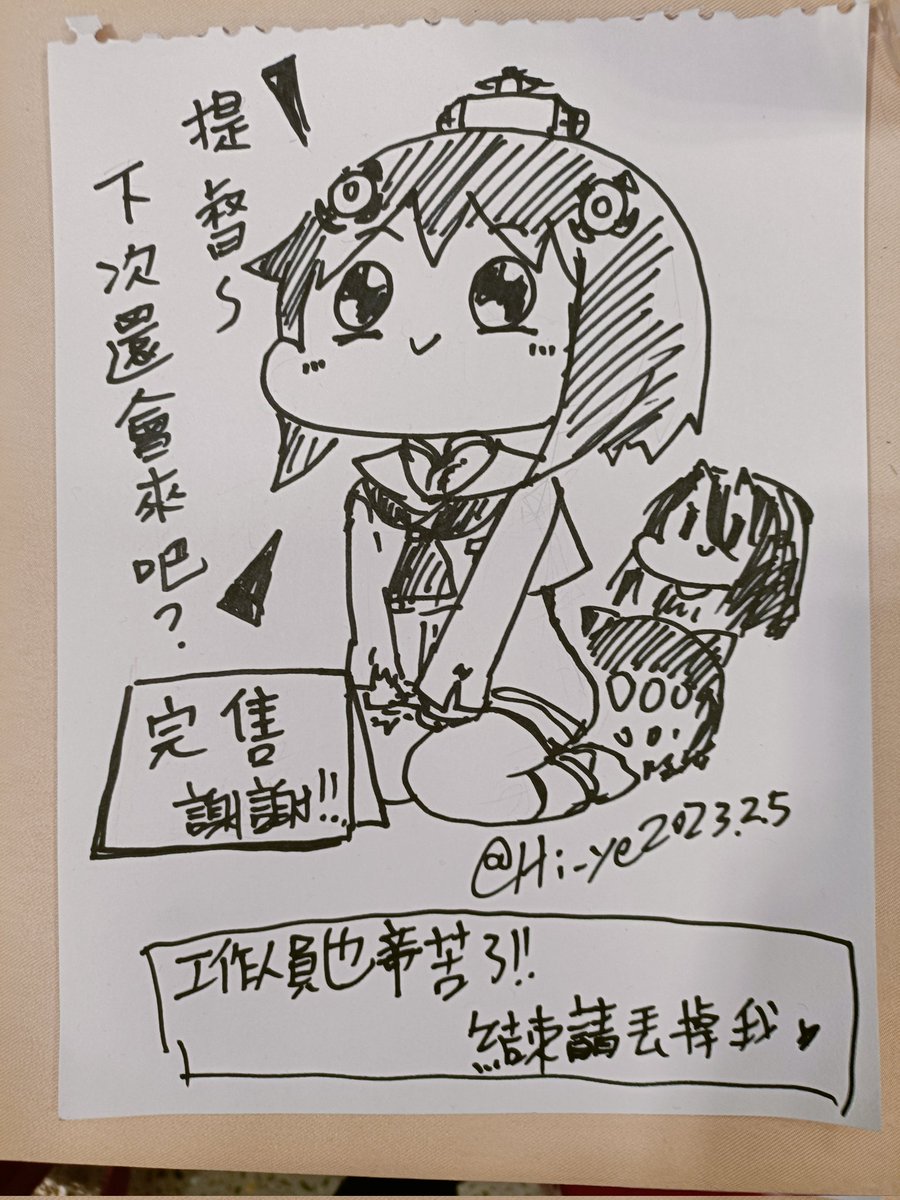 提督~
下次還會來吧?
完售
謝謝!!
@Hi_ye2023.2.5
工作人員也辛苦了!!
結束請丟掉我